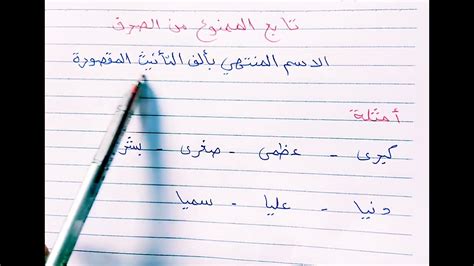 تابع الممنوع من الصرف
الاسم المنتهي بألف التأنيث المقصورة
أمثلة
كبرى - عظمى - صغرى - بشرى
دنيا - عليا - سميا